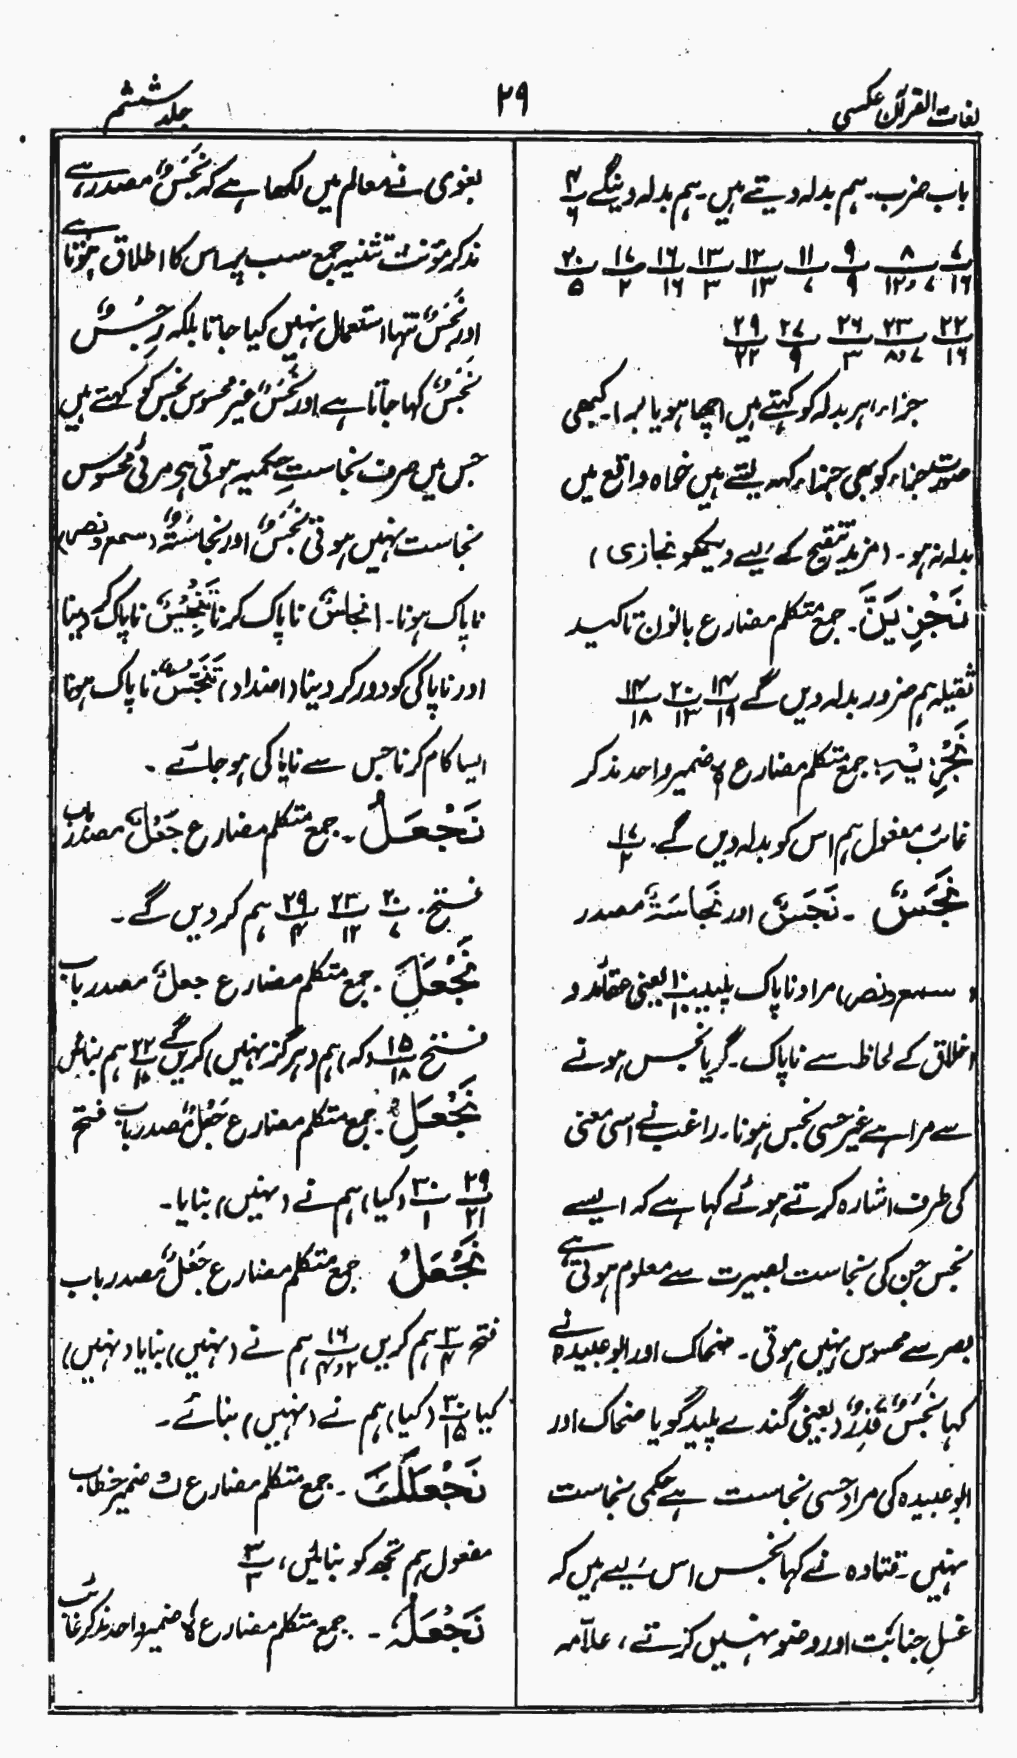 لغات القرآن عکسی
۲۹
جلد ششم
باب ضرب۔ ہم بدلہ دیتے ہیں۔ ہم بدلہ دینگے ۴/۶
۷/۱۶ ۸/۷و۱۲ ۹/۹ ۱۱/۷ ۱۲/۱۳ ۱۳/۳ ۱۶/۱۶ ۱۷/۲ ۲۰/۵
۲۲/۱۶ ۲۳/۷و۸ ۲۶/۳ ۲۷/۹ ۲۹/۲۲
جزاء، ہر بدلہ کو کہتے ہیں اچھا ہو یا برا۔ کبھی
صورت جزاء کو بھی جزاء کہہ لیتے ہیں خواہ واقع میں
بدلہ نہ ہو۔ (مزید تنقیح کے لیے دیکھو نجازی)
نَجْزِیَنَّ۔ جمع متکلم مضارع بانون تاکید
ثقیلہ ہم ضرور بدلہ دیں گے ۱۴/۱۹ ۲۰/۱۳ ۱۴/۱۸
نَجْزِیْہِ۔ جمع متکلم مضارع ہ ضمیر واحد مذکر
غائب مفعول ہم اس کو بدلہ دیں گے۔ ۱۷/۲
نَجَسٌ۔ نَجَسٌ اور نَجَاسَۃٌ مصدر
(سمع و نصر) مراد ناپاک پلید ۱۰/۱۰ یعنی عقائد و
اخلاق کے لحاظ سے ناپاک۔ گویا نجس ہونے
سے مراد ہے غیر حسی نجس ہونا۔ راغب نے اسی معنی
کی طرف اشارہ کرتے ہوئے کہا ہے کہ ایسے
نجس جن کی نجاست بصیرت سے معلوم ہوتی ہے
بصر سے محسوس نہیں ہوتی۔ ضحاک اور ابو عبیدہ نے
کہا نَجَسٌ قَذِرٌ (یعنی گندے پلید گویا ضحاک اور
ابو عبیدہ کی مراد حسی نجاست ہے حکمی نجاست
نہیں۔ قتادہ نے کہا نجس اس لیے ہیں کہ
غسلِ جنابت اور وضو نہیں کرتے، علامہ
بغوی نے معالم میں لکھا ہے کہ نَجَسٌ مصدر ہے
مذکر مؤنث تثنیہ جمع سب پر اس کا اطلاق ہوتا ہے
اور نَجَسٌ تنہا استعمال نہیں کیا جاتا بلکہ رِجْسٌ
نَجَسٌ کہا جاتا ہے اور نَجَسٌ غیر محسوس نجس کو کہتے ہیں
جس میں صرف نجاستِ حکمیہ ہوتی ہو مرئی محسوس
نجاست نہیں ہوتی نَجَسٌ اور نَجَاسَۃٌ (سمع و نصر)
ناپاک ہونا۔ اِنجاسٌ ناپاک کرنا تَنْجِیْسٌ ناپاک کر دینا
اور ناپاکی کو دور کر دینا (اضداد) تَنَجُّسٌ ناپاک ہونا
ایسا کام کرنا جس سے ناپاکی ہو جائے۔
نَجْعَلُ۔ جمع متکلم مضارع جَعْلٌ مصدر باب
فتح۔ ۲۰/۷ ۲۳/۱۲ ۲۹/۴ ہم کر دیں گے۔
نَجْعَلَ۔ جمع متکلم مضارع جعلٌ مصدر باب
فتح ۱۵/۱۸ (کہ) ہم (ہرگز نہیں) کریں گے ۲۲/ ہم بنائیں
نَجْعَلِ۔ جمع متکلم مضارع جَعْلٌ مصدر باب فتح
۲۹/۲۱ ۳۰/۱ (کیا) ہم نے (نہیں) بنایا۔
نَجْعَلُ جمع متکلم مضارع جَعْلٌ مصدر باب
فتح ۳/۴ ہم کریں ۱۶/۲و۴ ہم نے (نہیں) بنایا (نہیں)
کیا ۳۰/۱۵ (کیا) ہم نے (نہیں) بنائے۔
نَجْعَلَکَ۔ جمع متکلم مضارع ک ضمیر خطاب
مفعول ہم تجھ کو بنائیں، ۳/۳
نَجْعَلَہٗ۔ جمع متکلم مضارع ہٗ ضمیر واحد مذکر غائب